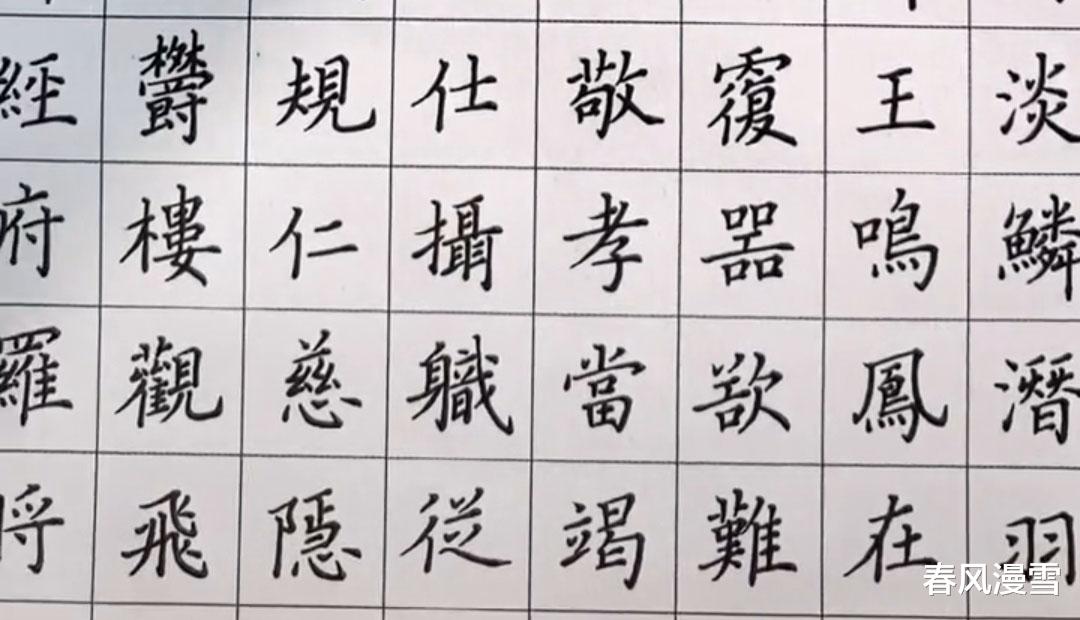 淡鱗潛羽
王鳴鳳在
覆噐欲難
敬孝當竭
仕攝軄従
規仁慈隠
欝樓觀飛
經府羅将
春风漫雪